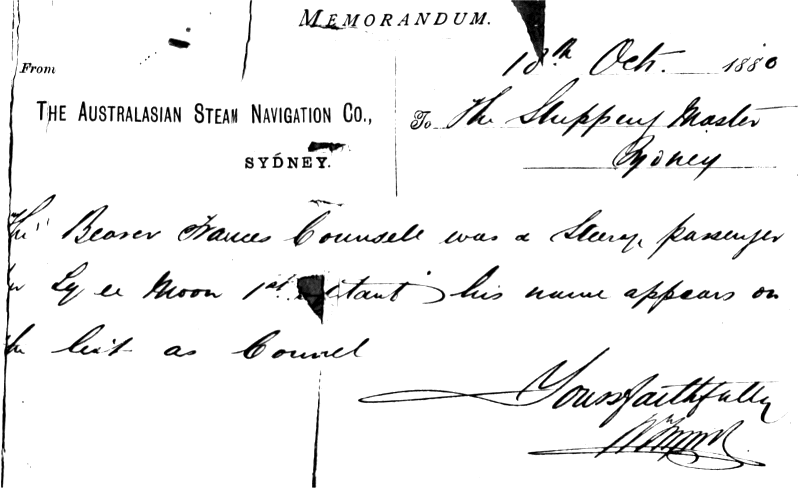 MEMORANDUM.
18th Oct. 1880
From
THE AUSTRALASIAN STEAM NAVIGATION CO.,
To The Shipping Master
SYDNEY.
Sydney
The Bearer Frances Counsell was a Steerage passenger
Ly ee Moon 1st his name appears on
the list as Counsel
Yours faithfully